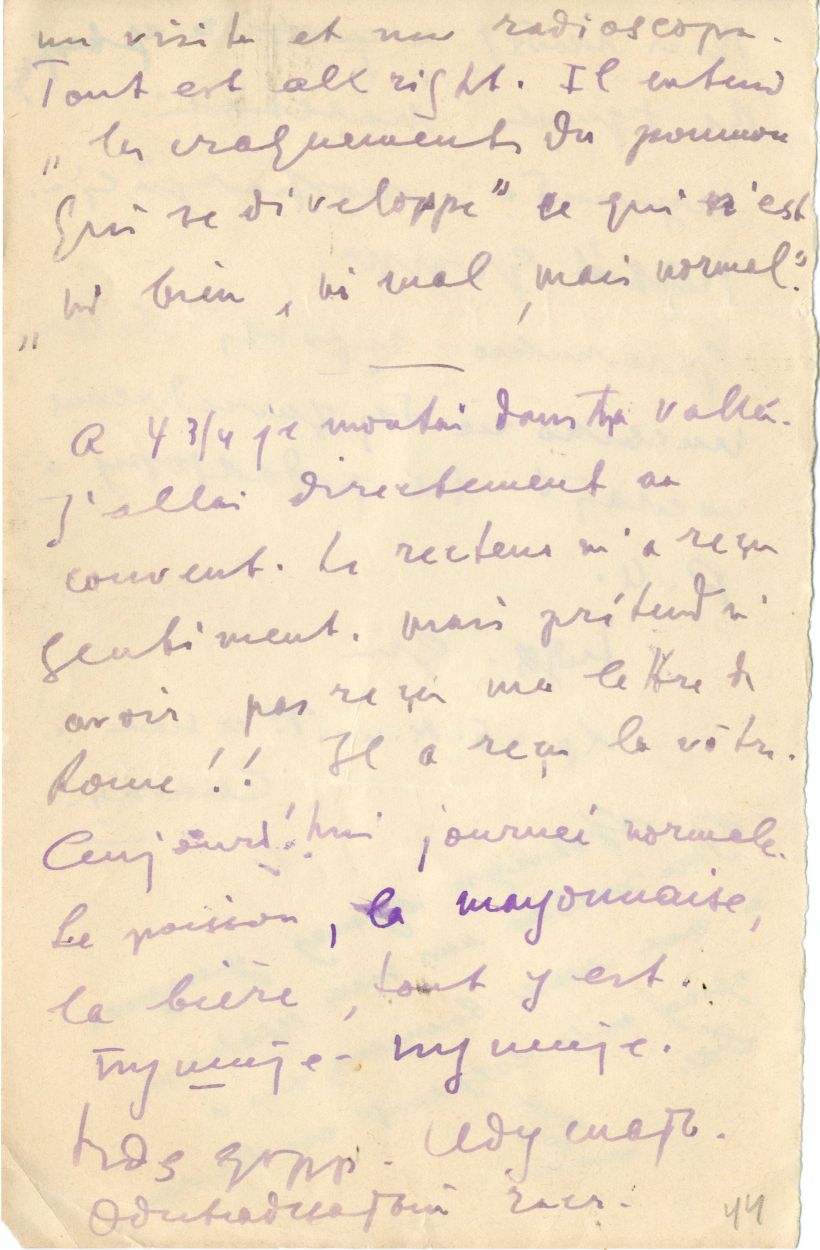 une visite et une radioscopie.
Tout est all right. Il entend
„les craquements du poumon
qui se développe” ce qui n'est
„ni bien, ni mal, mais normal.”
A 4 3/4 je montai dans la vallée.
J'allai directement au
couvent. Le recteur m'a reçu
gentiment. mais prétend n'
avoir pas reçu ma lettre de
Rome!! Il a reçu la vôtre.
Aujourd'hui journée normale.
Le poisson, la mayonnaise,
la bière, tout y est.
Иду спать.
Одиннадцатый час.
44